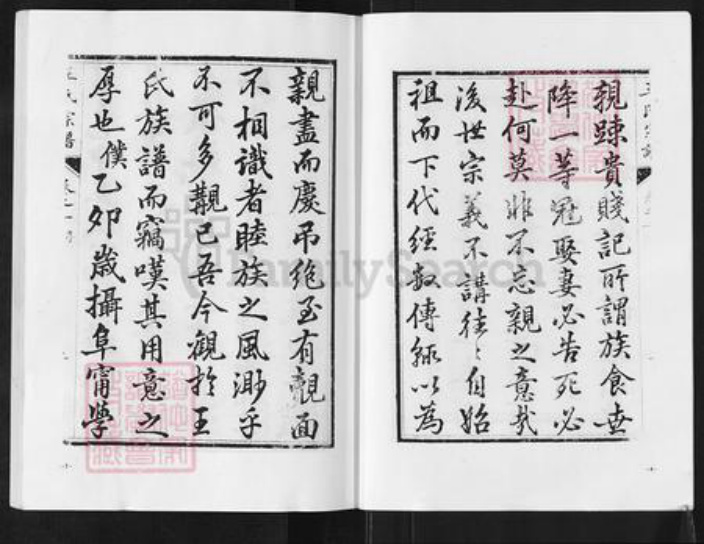 親踈貴賤記所謂族食世
降一等冠娶妻必告死必
赴何莫非不忘親之意哉
後世宗義不講徃〻自始
祖而下代經數傳輒以為
親盡而慶吊絶至有覿面
不相識者睦族之風渺乎
不可多覯已吾今觀於王
氏族譜而竊嘆其用意之
厚也僕乙夘歲攝阜甯學
王氏宗譜
FamilySearch